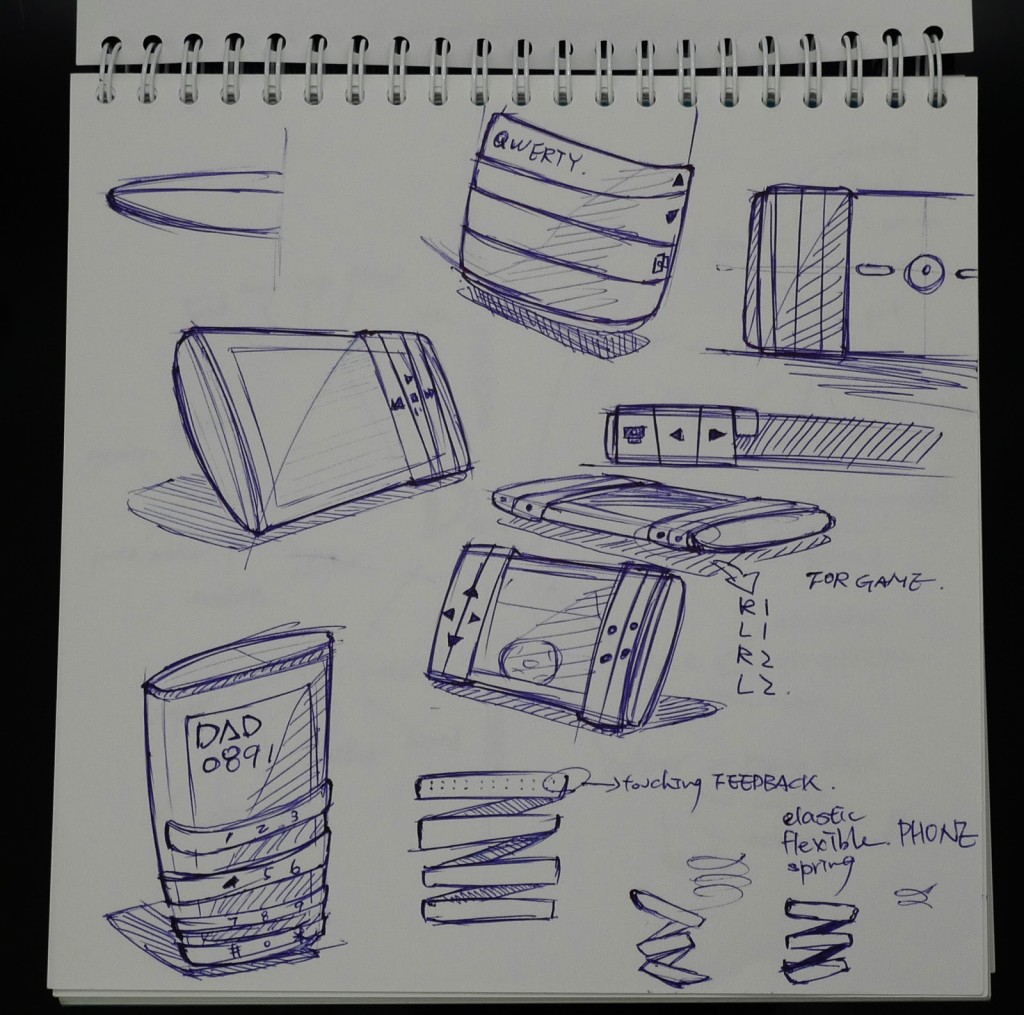 QWERTY.
FOR GAME.
R1
L1
R2
L2.
DAD
0891
1 2 3
5 6
7 8 9
# 0 *
touching FEEDBACK.
elastic
flexible. PHONE
spring